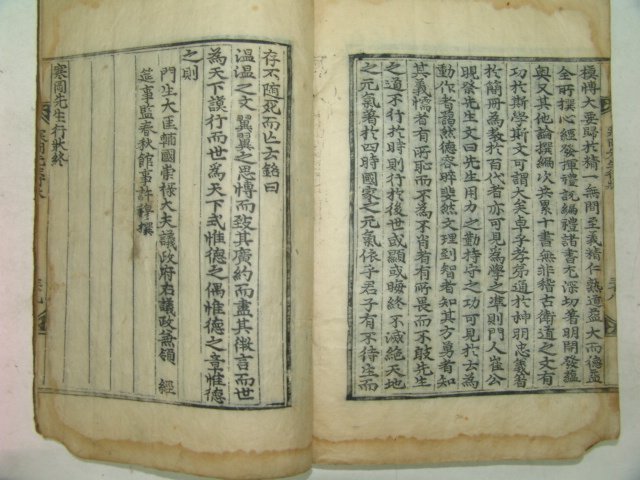 極博大要歸於精一無間至義精仁熟道益大而德益
全所撰心經發揮禮說編禮諸書尤深切著明開發蘊
奧又其他論撰編次共累十書無非稽古衛道之文有
功於斯學斯文可謂大矣卓乎孝弟通於神明忠義著
於簡冊為教於百代者亦可見為學之準則門人崔公
晛祭先生文曰先生用力之勤持守之功可見於士為
動作者藹然德容晬斐然文理到智者知其方勇者知
其義懦者有所恥而不為不肖者有所畏而不敢先生
之道不行於時則行於後世或顯或晦終不滅絕天地
之元氣著於四時國家之元氣依乎君子有不待生而
存不隨死而亡云銘曰
溫溫之文翼翼之思博而致其廣約而盡其微言而世
為天下謨行而世為天下式惟德之偶惟德之章惟德
之則
門生大匡輔國崇祿大夫議政府右議政兼領 經
筵事監春秋館事許穆撰
寒岡先生行狀終